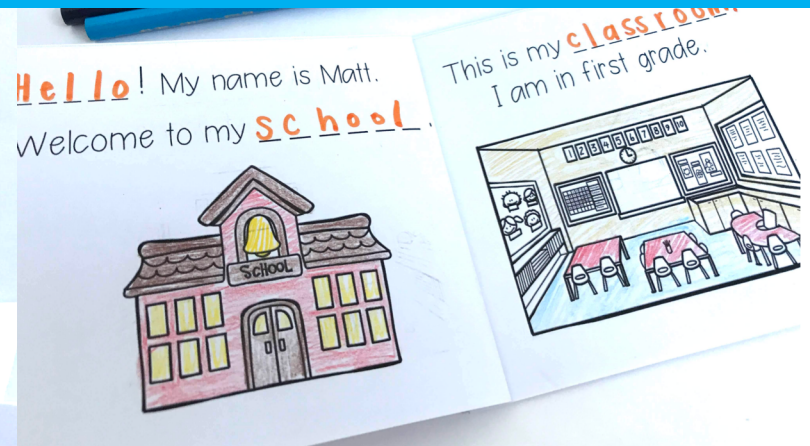 Hello! My name is Matt.
Welcome to my school.
SCHOOL
This is my classroom.
I am in first grade.
1 2 3 4 5 6 7 8 9 10